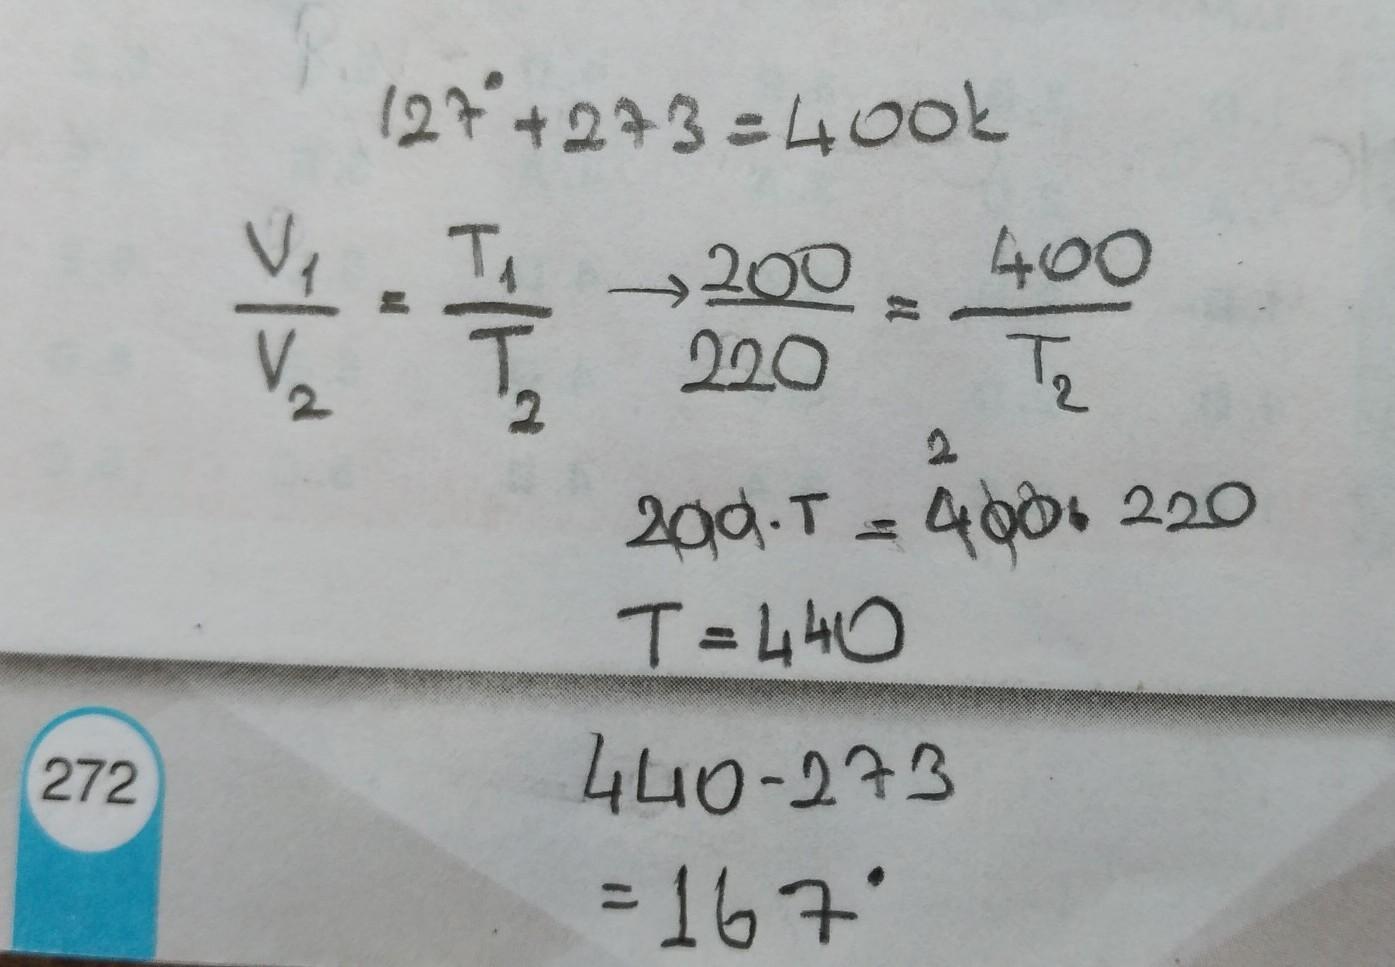 127° + 273 = 400k
V₁/V₂ = T₁/T₂ → 200/220 = 400/T₂
2
200.T = 400. 220
T = 440
272
440 - 273
= 167°